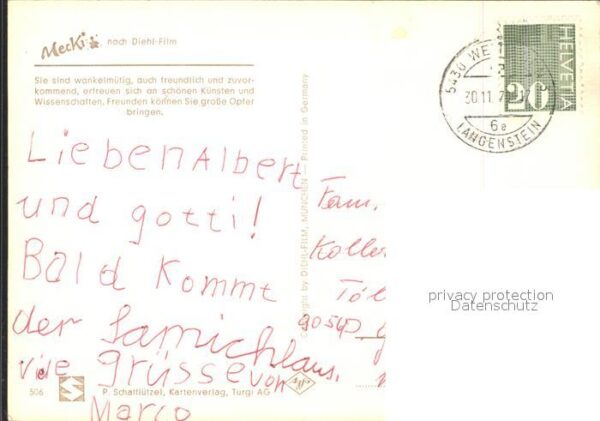 Mecki nach Diehl-Film
Sie sind wankelmütig, auch freundlich und zuvor-
kommend, erfreuen sich an schönen Künsten und
Wissenschaften. Freunden können Sie große Opfer
bringen.
Lieben Albert
und gotti!
Bald Kommt
der Samichlaus,
viele grüsse von
Marco
506
P. Schaflützel, Kartenverlag, Turgi AG
Copyright by DIEHL-FILM, MÜNCHEN — Printed in Germany
5430 WE
30.11.7
6a
LANGENSTEIN
HELVETIA
20
Fam.
Kolle
Töl
privacy protection
Datenschutz